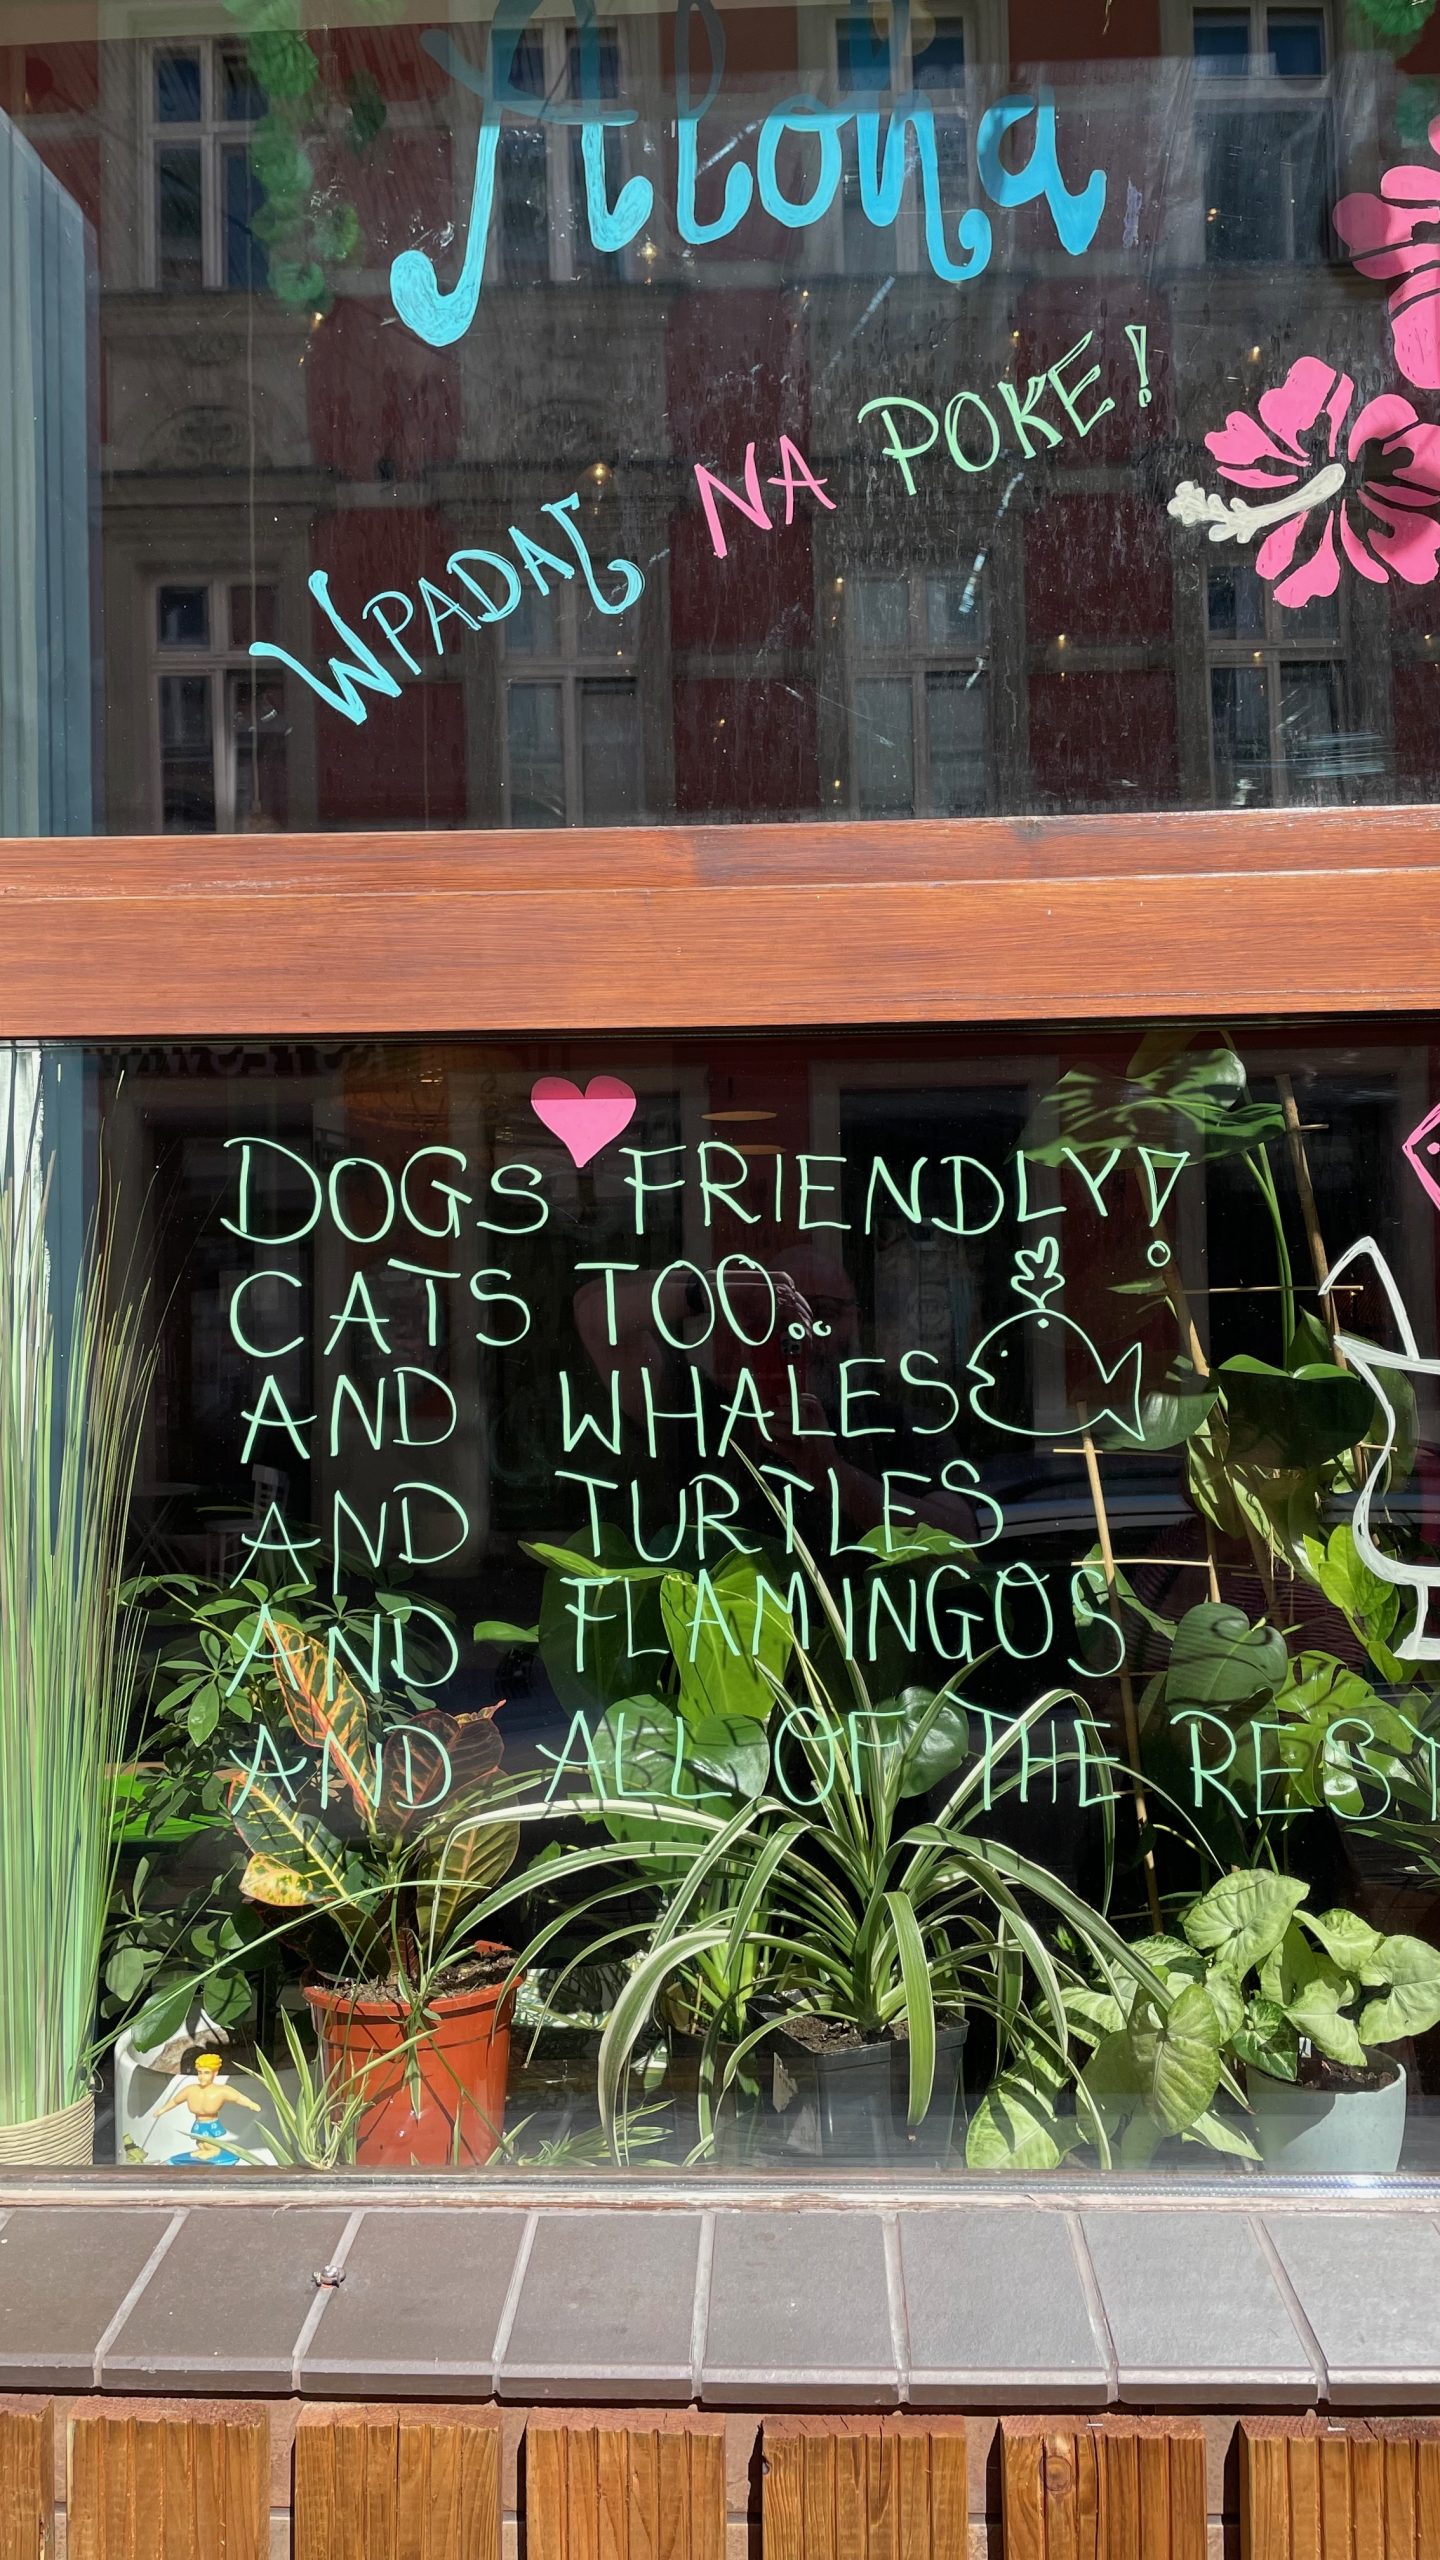 Aloha
WPADAJ NA POKE!
DOGS FRIENDLY!
CATS TOO..
AND WHALES
AND TURTLES
AND FLAMINGOS
AND ALL OF THE REST